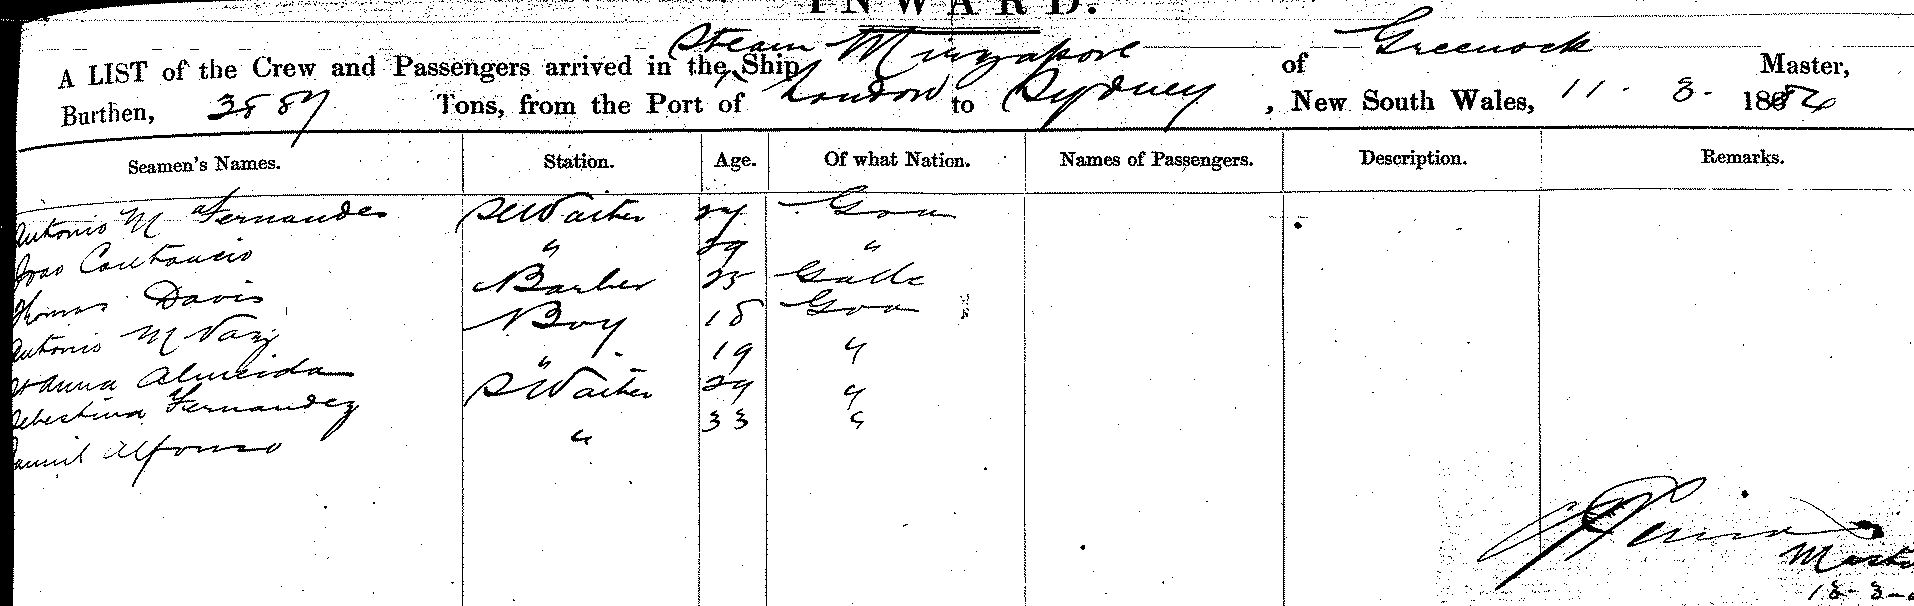 INWARD.
A LIST of the Crew and Passengers arrived in the Steam Ship Mirzapore of Greenock Master,
Burthen, 3887 Tons, from the Port of London to Sydney , New South Wales, 11. 3. 1886
Seamen's Names. Station. Age. Of what Nation. Names of Passengers. Description. Remarks.
Antonio M Fernandes Waiter Goa
Joao 29 "
Thomas Davis Barber 25 Galle
Antonio M Vaz Boy 18 Goa
Almeida " 19 "
Fernandez Waiter 29 "
Alfonso " 33 "
Master